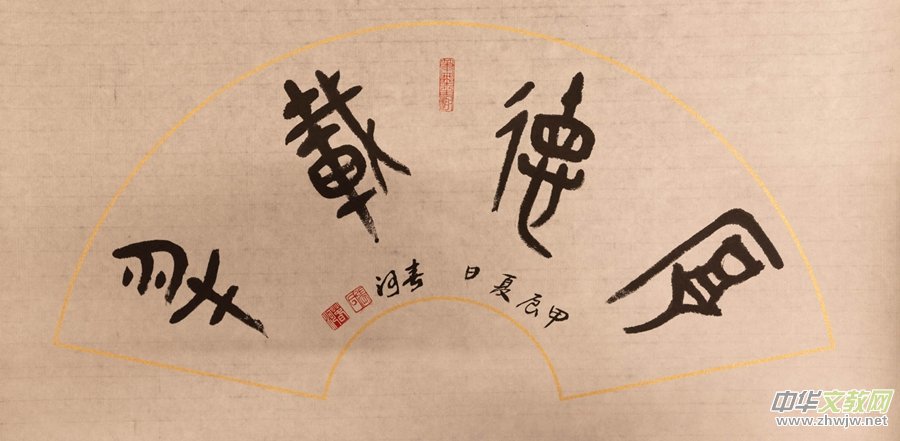 厚德載物
甲辰夏日 春河
中华文教网
www.zhwjw.net